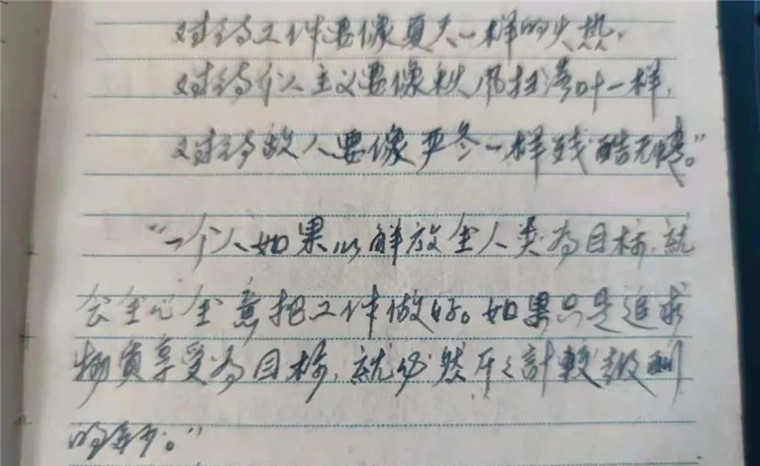 对待工作要像夏天一样的火热，
对待个人主义要像秋风扫落叶一样，
对待敌人要像严冬一样残酷无情。”
“一个人如果以解放全人类为目标，就
会全心全意把工作做好。如果只是追求
物质享受为目标，就必然斤斤计较报酬
的